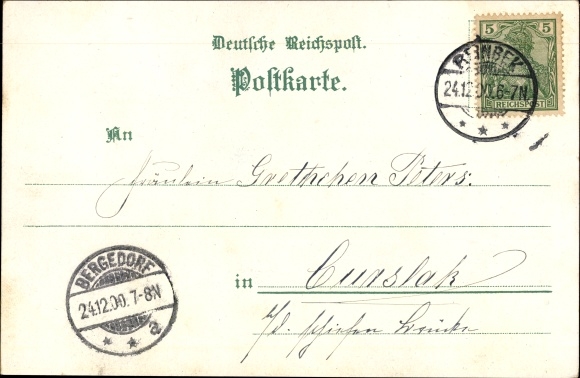 Deutsche Reichspost.
Postkarte.
5 5
REICHSPOST
REINBEK
24.12.00. 6-7N
An
Fräulein Grethchen Peters.
in Curslak
a/d. schiefen Brücke
BERGEDORF
24.12.00. 7-8N
a